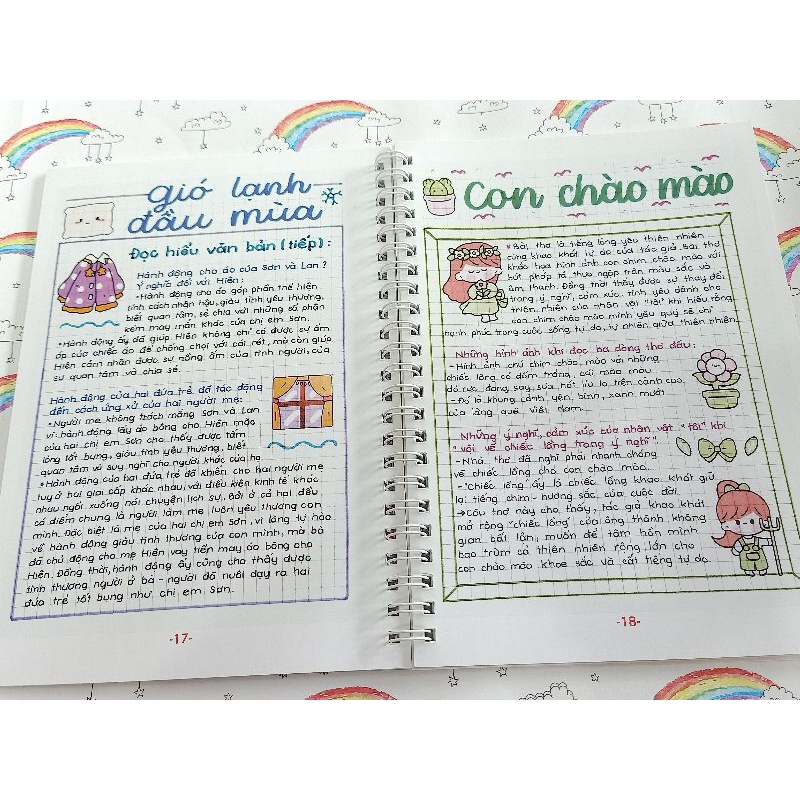 gió lạnh
đầu mùa
Đọc hiểu văn bản (tiếp):
Hành động cho áo của Sơn và Lan?
Ý nghĩa đối với Hiên:
• Hành động cho áo góp phần thể hiện
tính cách nhân hậu, giàu tình yêu thương,
biết quan tâm, sẻ chia với những số phận
kém may mắn khác của chị em Sơn.
• Hành động ấy đã giúp Hiên không chỉ có được sự ấm
áp của chiếc áo để chống chọi với cái rét, mà còn giúp
Hiên cảm nhận được sự nồng ấm của tình người, của
sự quan tâm và chia sẻ.
Hành động của hai đứa trẻ đã tác động
đến cách ứng xử của hai người mẹ:
• Người mẹ không trách mắng Sơn và Lan
vì hành động lấy áo bông cho Hiên mặc
của hai chị em Sơn cho thấy được tấm
lòng tốt bụng, giàu tình yêu thương, biết
quan tâm và suy nghĩ cho người khác của họ.
• Hành động của hai đứa trẻ đã khiến cho hai người mẹ
tuy ở hai gia cấp khác nhau, với điều kiện kinh tế khác
nhau ngồi xuống nói chuyện lịch sự. Bởi ở cả hai đều
có điểm chung là người làm mẹ luôn yêu thương con
mình. Đặc biệt là mẹ của hai chị em Sơn, vì lòng tự hào
về hành động giàu tình thương của con mình, mà bà
đã chủ động cho mẹ Hiên vay tiền may áo bông cho
Hiên. Đồng thời, hành động ấy cũng cho thấy được
tình thương người ở bà - người đã nuôi dạy ra hai
đứa trẻ tốt bụng như chị em Sơn.
-17-
Con chào mào
* Bài thơ là tiếng lòng yêu thiên nhiên
cùng khao khát tự do của tác giả. Bài thơ
khắc họa hình ảnh con chim chào mào với
bút pháp tả thực ngập tràn màu sắc và
âm thanh. Đồng thời thấy được sự thay đổi
trong ý nghĩ, cảm xúc, tình yêu dành cho
thiên nhiên của nhân vật "tôi" khi hiểu rằng
con chim chào mào mình yêu quý sẽ chỉ
hạnh phúc trong cuộc sống tự do, tự nhiên, giữa thiên nhiên.
Những hình ảnh khi đọc ba dòng thơ đầu:
- Hình ảnh chú chim chào mào với những
chiếc lông có đốm trắng, cái mào màu
đỏ rực, đang say sưa hót líu lo trên cành cao.
- Đó là khung cảnh yên bình, xanh mướt
của làng quê Việt Nam.
Những ý nghĩ, cảm xúc của nhân vật "tôi" khi
"vội vẽ chiếc lồng trong ý nghĩ".
- Nhà thơ đã nghĩ phải nhanh chóng
vẽ chiếc lồng cho con chào mào.
- "Chiếc lồng" ấy là chiếc lồng khao khát giữ
lại tiếng chim - hương sắc của cuộc đời.
→ Câu thơ này cho thấy, tác giả khao khát
mở rộng "chiếc lồng" của ông thành không
gian bất tận, muốn để tâm hồn mình
bao trùm cả thiên nhiên rộng lớn cho
con chào mào khoe sắc và cất tiếng tự do.
-18-